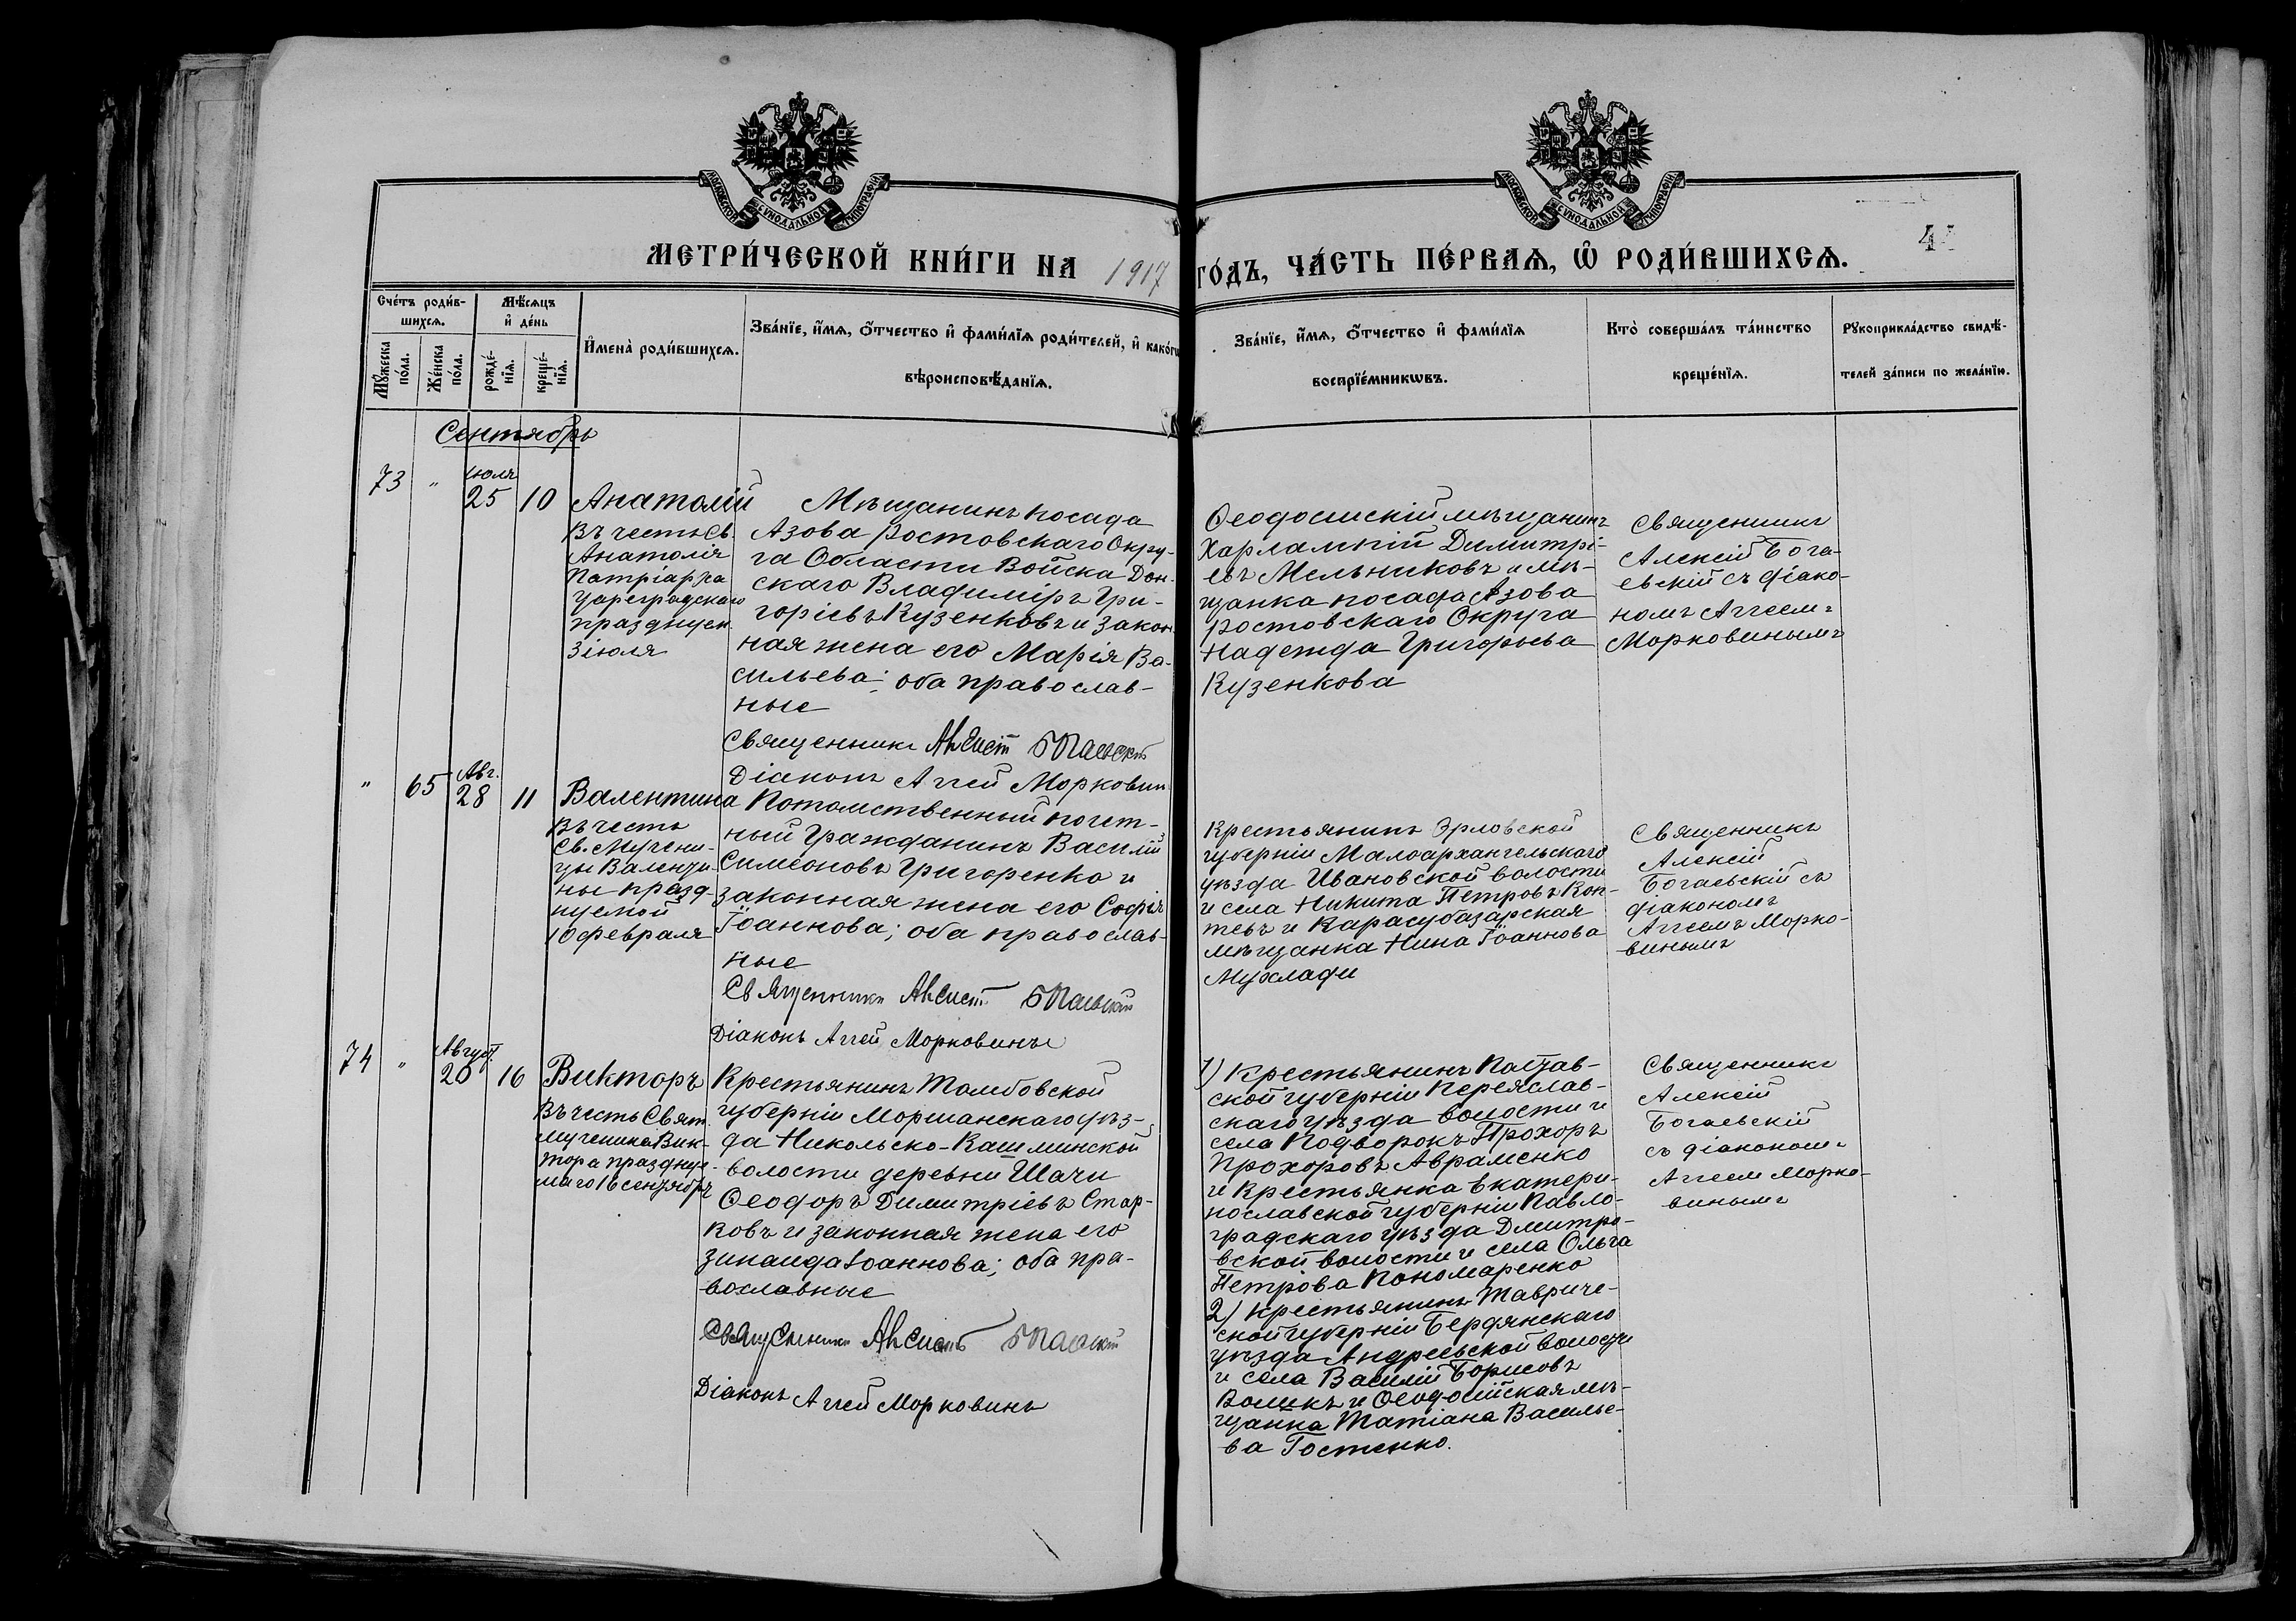 МОСКОВСКОЙ СѴНОДАЛЬНОЙ ТИПОГРАФІИ
МОСКОВСКОЙ СѴНОДАЛЬНОЙ ТИПОГРАФІИ
МЕТРИ́ЧЕСКОЙ КНИ́ГИ НА 1917 ГО́ДЪ, ЧА́СТЬ ПЕ́РВАѦ, Ѽ РОДИ́ВШИХСѦ.
Сче́тъ роди́в-
шихсѧ.
Мꙋ́жеска по́ла.
Же́нска по́ла.
Мѣ́сѧцъ
и҆ де́нь
рожде́-
нїѧ.
креще́-
нїѧ.
И҆мена̀ роди́вшихсѧ.
Зва́нїе, и҆́мѧ, ѻ҆́тчество и҆ фами́лїѧ роди́телей, и҆ како́гѡ
вѣроисповѣ́данїѧ.
Зва́нїе, и҆́мѧ, ѻ҆́тчество и҆ фами́лїѧ
воспрїе́мникѡвъ.
Кто̀ соверша́лъ та́инство
креще́нїѧ.
Рꙋкоприкла́дство свидѣ́-
телей за́писи по жела́нїю.
Сентябрь
73 " Іюля 25 10
Анатолій
Въ честь Св.
Анатолія
Патріарха
Цареградскаго
празднуем.
3 іюля
Мѣщанинъ посада
Азова Ростовскаго Окру-
га Области Войска Дон-
скаго Владиміръ Гри-
горіевъ Кузенковъ и закон
ная жена его Марія Ва-
сильева; оба православ-
ные
Священникъ Алексій Богаевскій
Діаконъ Аггей Морковин
Ѳеодосійскій мѣщанинъ
Харлампій Димитрі-
евъ Мельниковъ и мѣ-
щанка посада Азова
Ростовскаго Округа
Надежда Григорьева
Кузенкова
Священникъ
Алексій Бога-
евскій съ діако-
номъ Аггеемъ
Морковинымъ
" 65 Авг. 28 11
Валентина
Въ честь
Св. Мучени-
цы Валенти-
ны празд-
нуемой
10 февраля
Потомственный почет-
ный Гражданинъ Василій
Симеоновъ Григоренко и
законная жена его Софія
Іоаннова; оба православ-
ные
Священникъ Алексій Богаевскій
Діаконъ Аггей Морковинъ
Крестьянинъ Орловской
губерніи Малоархангельскаго
уѣзда Ивановской волости
и села Никита Петровъ Коп-
тевъ и Карасубазарская
мѣщанка Нина Іоаннова
Мухлади
Священникъ
Алексій
Богаевскій съ
діакономъ
Аггеемъ Морко-
винымъ
74 " Август. 20 16
Викторъ
Въ честь Свят.
мученика Вик-
тора праздну-
маго 16 сентября
Крестьянинъ Тамбовской
губерніи Моршанскаго уѣз-
да Никольско-Кашминской
волости деревни Шачи
Ѳеодоръ Димитріевъ Стар-
ковъ и законная жена его
Зинаида Іоаннова; оба пра-
вославные
Священникъ Алексій Богаевскій
Діаконъ Аггей Морковинъ
1) Крестьянинъ Полтав-
ской губерніи Переяслав-
скаго уѣзда волости и
села Подворокъ Прохоръ
Прохоровъ Авраменко
и крестьянка Екатери-
нославской губерніи Павло-
градскаго уѣзда Дмитро-
вской волости и села Ольга
Петрова Пономаренко
2) Крестьянинъ Тавриче-
ской губерніи Бердянскаго
уѣзда Андреевской волости
и села Василій Борисовъ
Воликъ и Ѳеодосійская мѣ-
щанка Татіана Василье-
ва Гостенко.
Священникъ
Алексій
Богаевскій
съ діакономъ
Аггеем Морко-
винымъ